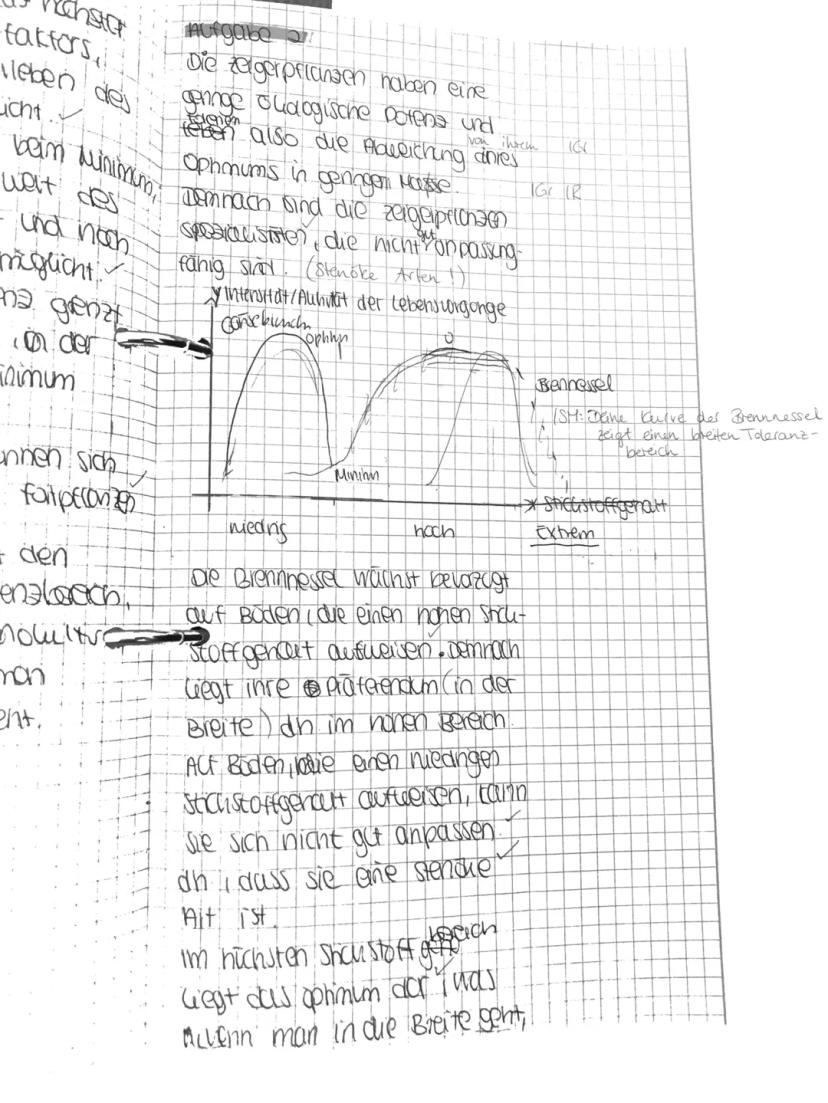 nächster
faktors,
leben des
icht. ✓
beim Minimum,
weit des
und noch
möglicht. ✓
grenzt
in der
inimum
nnen sich
den
man
eht.
Aufgabe 2
Die Zeigerpflanzen haben eine
geringe ökologische Potenz und
also die Abweichung von ihrem Gr
Ophmums in geringen Maße. Gr R
Demnach sind die Zeigerpflanzen
spezialisten, die nicht gut anpassung-
fähig sind. (Stenöke Arten!)
y Intensität/Aktivität der Lebensvorgänge
Gänseblümch
O
Brennessel
SM: Deine Kurve der Brennnessel
zeigt einen breiten Toleranz-
bereich
Minimum
x Stickstoffgehalt
niedrig hoch Extrem
Die Brennnessel wächst bevozugt
auf Böden, die einen hohen Stick-
stoffgehalt aufweisen. Demnach
liegt ihre Präferendum (in der
Breite) dh im hohen Bereich.
Auf Böden, die einen niedrigen
Stickstoffgehalt aufweisen, kann
sie sich nicht gut anpassen. ✓
dh, dass sie eine stenöke ✓
Art ist.
Im höchsten Stickstoff bereich
liegt das Optimum dar, was
Wenn man in die Breite geht,